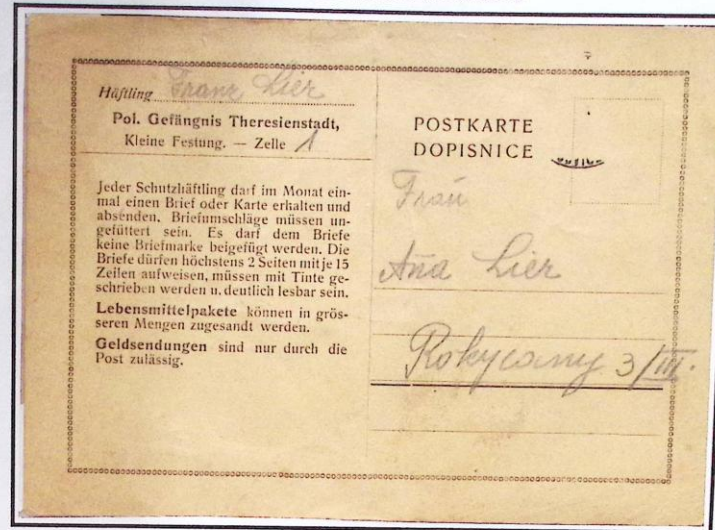 Häftling Franz Lier
Pol. Gefängnis Theresienstadt,
Kleine Festung. — Zelle 1
Jeder Schutzhäftling darf im Monat ein-
mal einen Brief oder Karte erhalten und
absenden. Briefumschläge müssen un-
gefüttert sein. Es darf dem Briefe
keine Briefmarke beigefügt werden. Die
Briefe dürfen höchstens 2 Seiten mit je 15
Zeilen aufweisen, müssen mit Tinte ge-
schrieben werden u. deutlich lesbar sein.
Lebensmittelpakete können in grös-
seren Mengen zugesandt werden.
Geldsendungen sind nur durch die
Post zulässig.
POSTKARTE
DOPISNICE
Frau
Ana Lier
Rokycany 3/III.